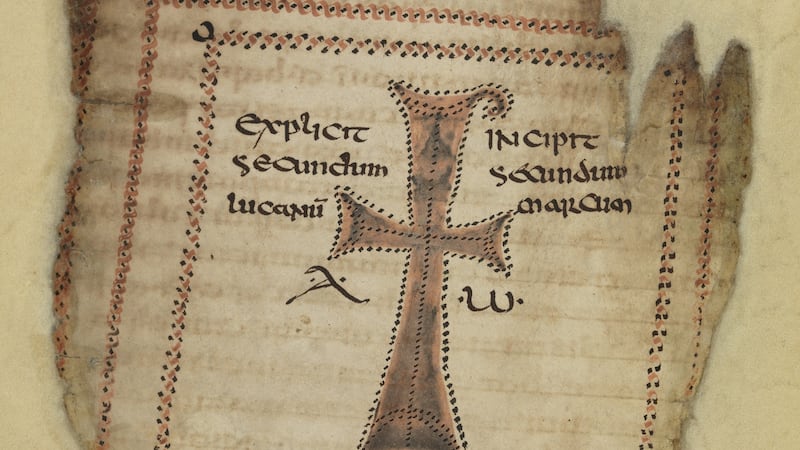 explicit
secundum
lucanū
INcipit
secundum
marcum
A
·ω·